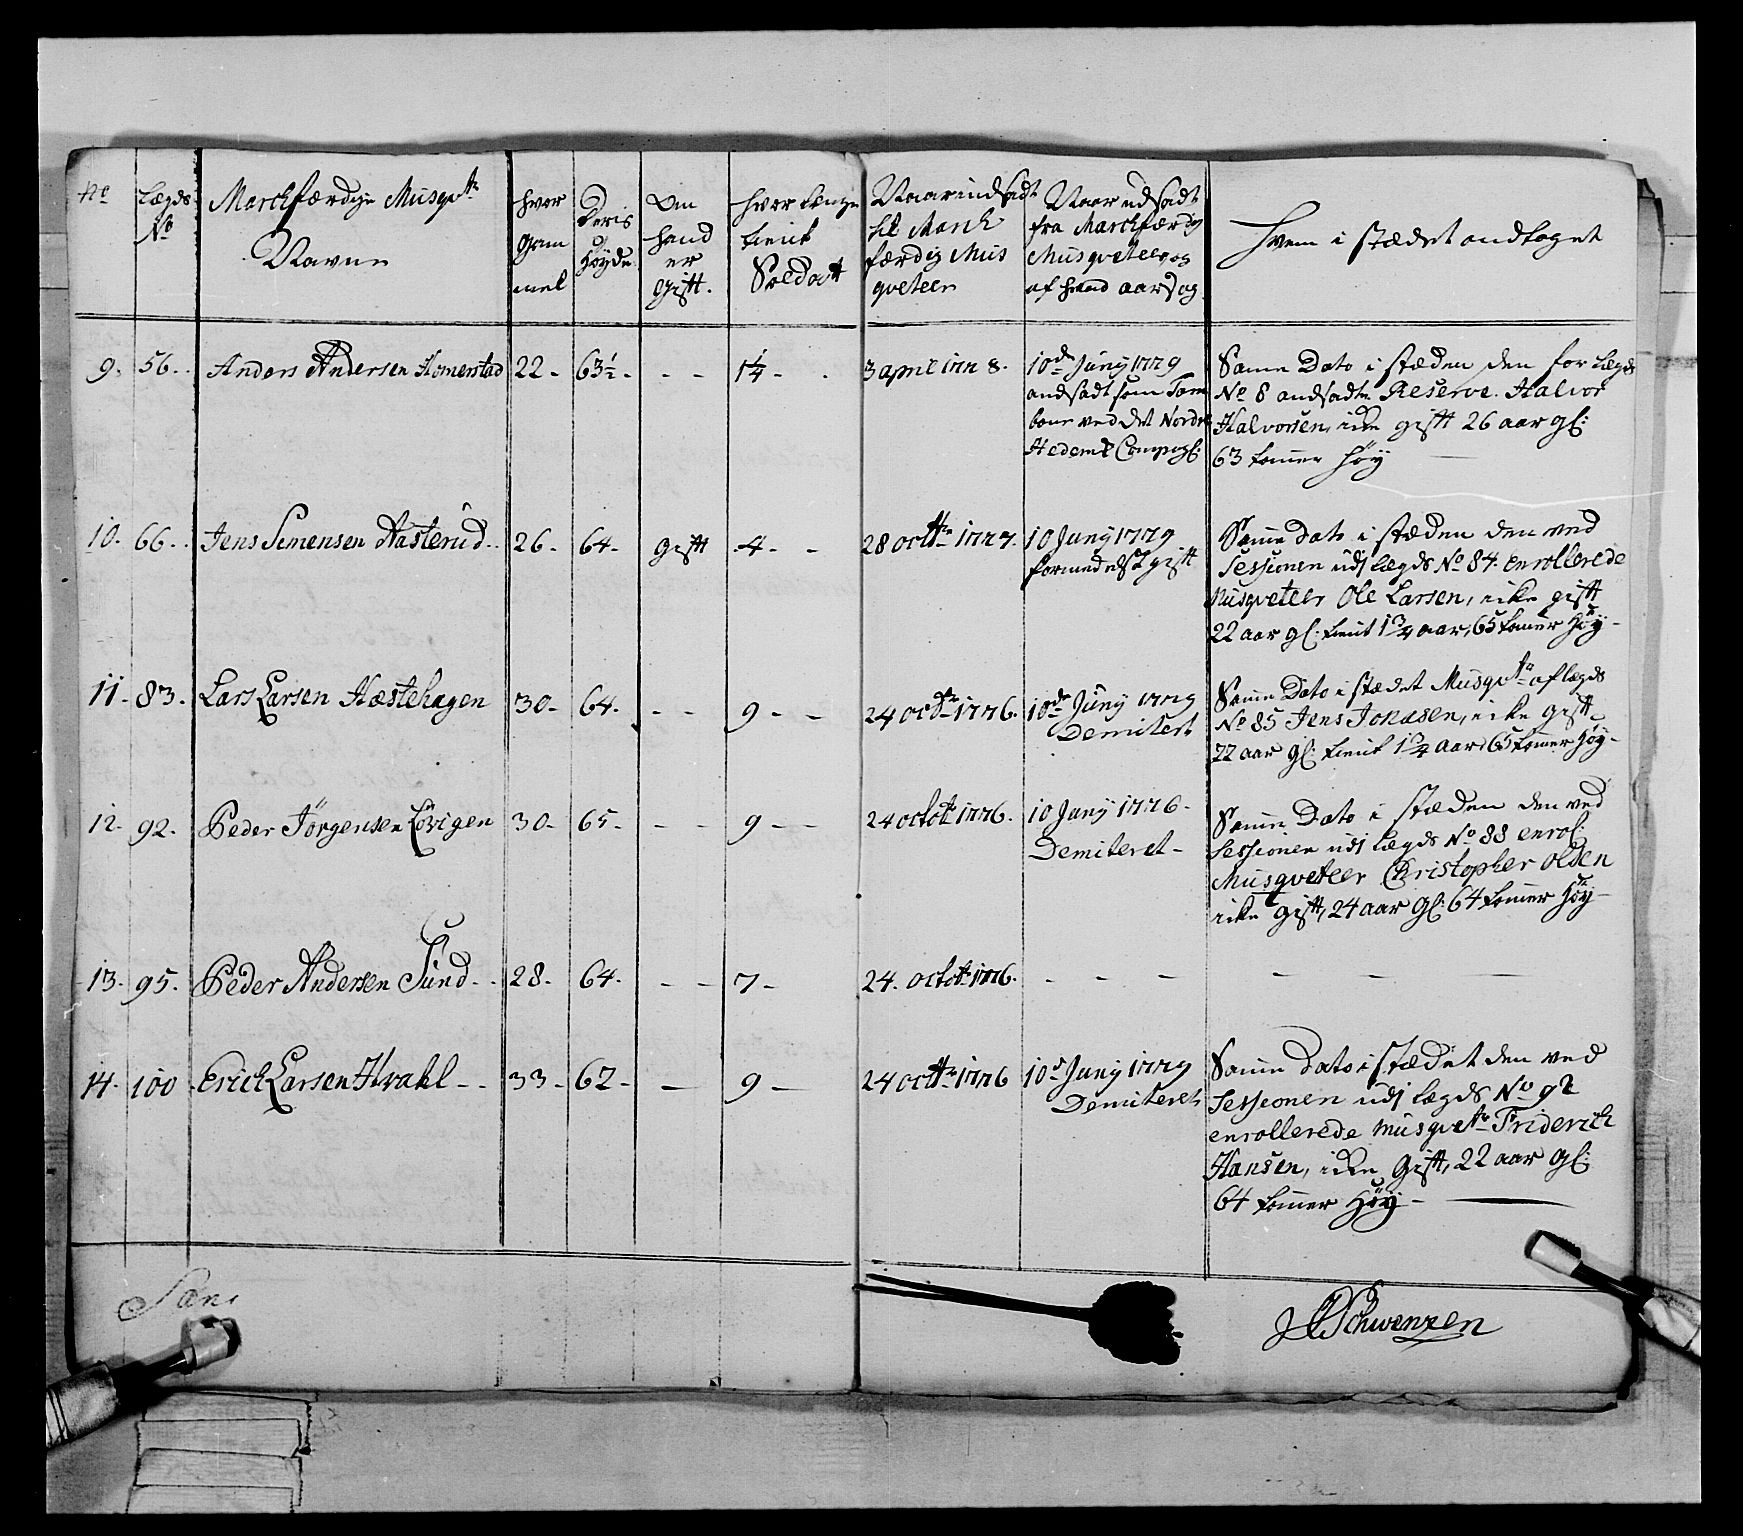 No
Lægds No
Marchfærdige Musqvtr Navne
hvor gam mel
Deris Höyde
Om hand er gift.
hvor længe tient Soldatt
Naar indsadt til March færdig Mus qveteer
Naar udsadt fra Marchfærdig Musqveteer, og af hvad aarsag
Hvem i stædet andtaget
9. 56. Anders Andersen Homerstad 22 - 63½ - - - 1¼ - - 3 april 1778. 10de Juny 1779
andsadt som Tam
bour ved det Nordre
Hedem: Compagl:
Samme Dato i stæden den for Lægds
No 8 andsadte Reserve Halvor
Halvorsen, icke gift 26 aar gl:
63 tommer höy
10. 66. Jens Simensen Aasterud 26 - 64 - gift 4 - - 28 octbr 1777. 10 Juny 1779
formedelst gift
Samme Dato i stæden den ved
Sessionen udj Lægds No 84 enrollerede
Musqveteer Ole Larsen, icke gift
22 aar gl: tient 1¾ aar, 65 tommer Höy -
11. 83. Lars Larsen Hæstehagen 30 - 64 - - - 9 - - 24 octbr 1776. 10de Juny 1779
Demitert
Samme Dato i stædet Musqvtr af Lægds
No 85 Jens Jonasen, icke gift
22 aar gl: tient 1¾ aar, 65 tommer höy -
12. 92. Peder Jörgensen Lövigen 30 - 65 - - - 9 - - 24 octobr 1776. 10 Juny 1776 -
Demiteret -
Samme Dato i stæden den ved
Sessionen udj Lægds No 88 enrol:
Musqveteer Christopher Olsen
icke gift, 24 aar gl: 64 tommer höy -
13. 95. Peder Andersen Sund - - 28 - 64 - - - 7 - 24. octobr 1776. - - - - - -
14. 100 Erick Larsen Hvahl - - 33 - 62 - - 9 - 24 octbr 1776 10d Juny 1779
Demiteret
Samme Dato i stædet den ved
Sessionen udj Lægds No 92
enrollerede Musqvetr Friderich
Hansen, icke Gift, 22 aar gl:
64 tommer Höy -
Schwenzen